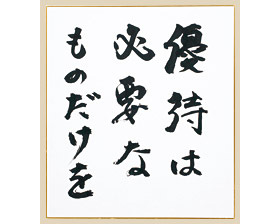 優待は
必要な
ものだけを